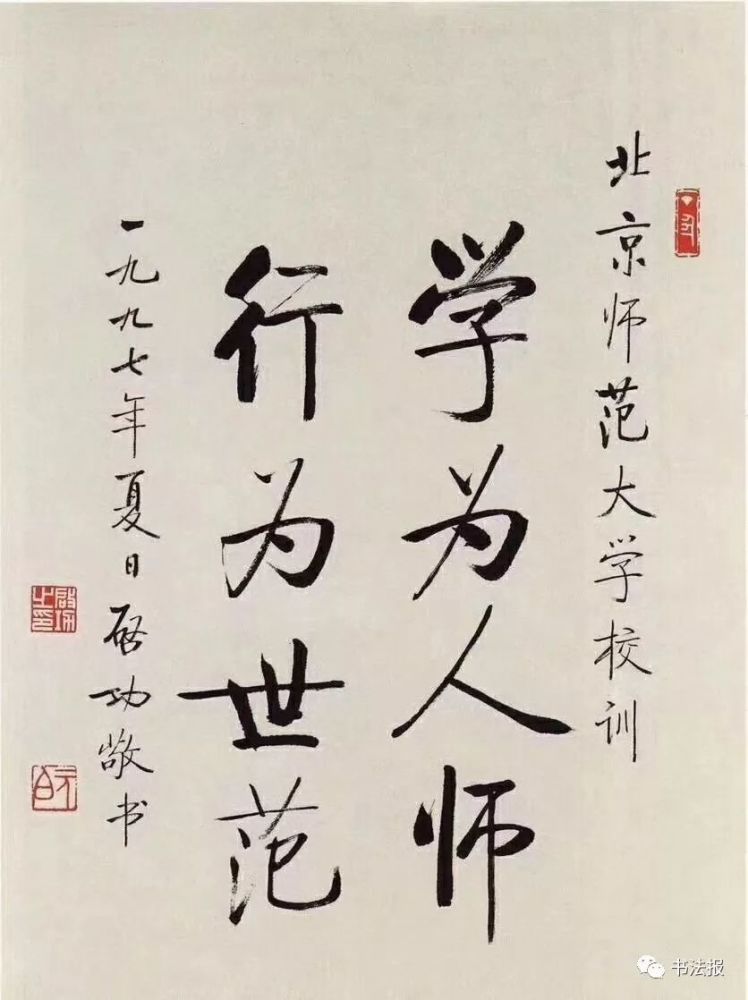 北京师范大学校训
学为人师
行为世范
一九九七年夏日启功敬书
启功之印
元白
书法报